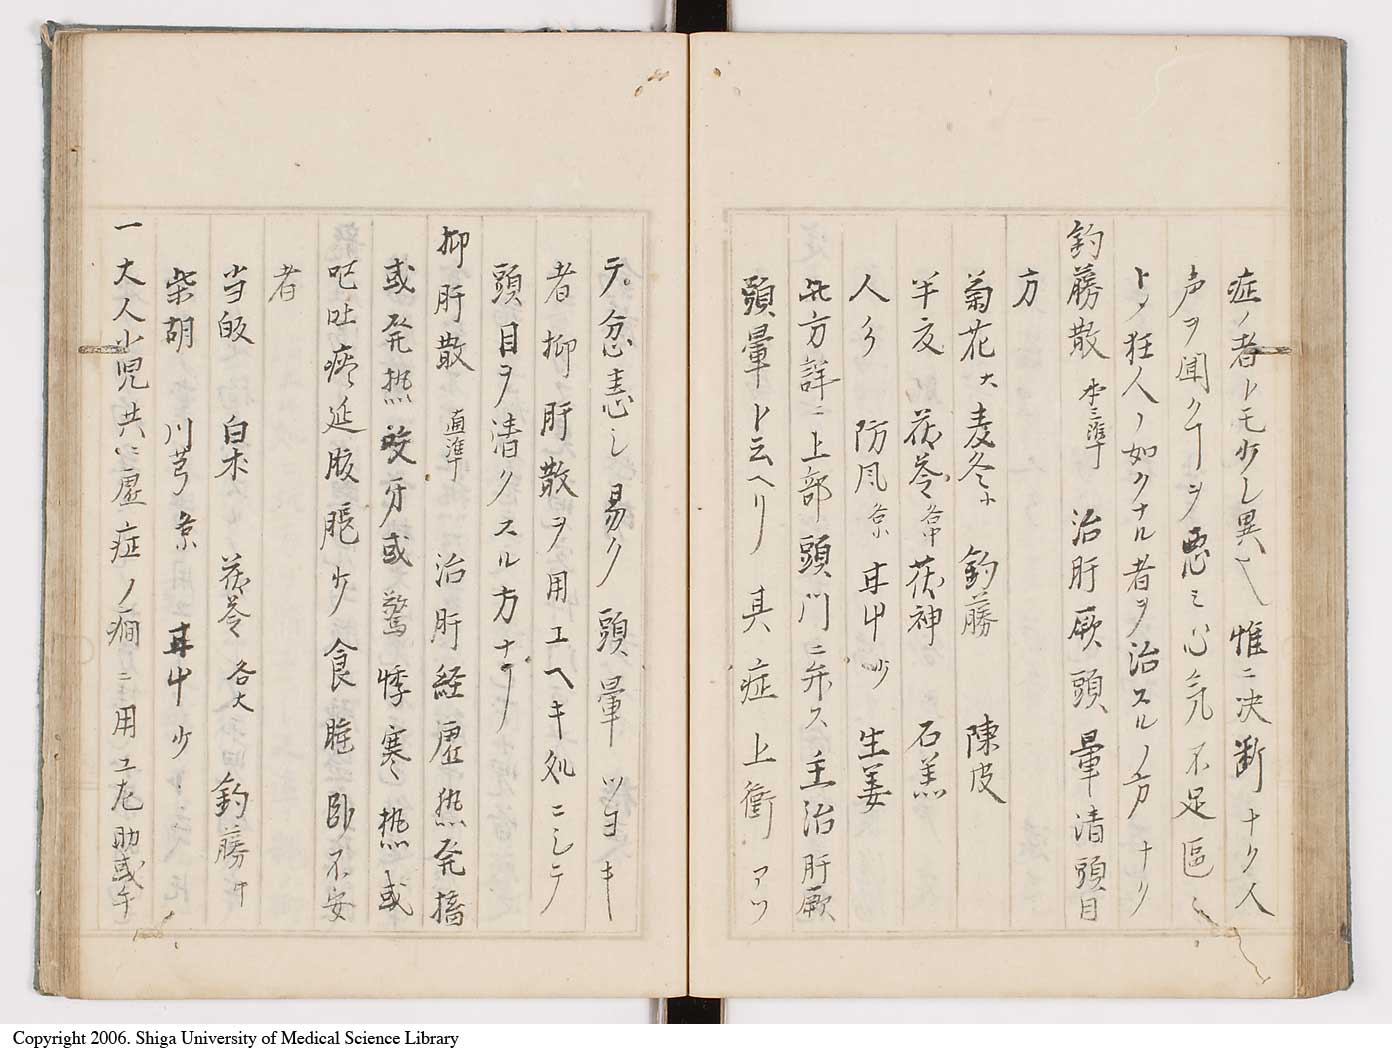 症ノ者トモ少シ異ヘ惟ニ决断ナク人
声ヲ聞クヿヲ悪ミ心気不足區〻
トノ狂人ノ如クナル者ヲ治スルノ方ナリ
釣藤散 本三準 治肝厥頭暈清頭目
方
菊花大 麦冬中 釣藤 陳皮
半夏 茯苓各中 茯神 石羔
人参 防风各小 甘艸少 生姜
此方詳ニ上部頭門ニ弁ス主治肝厥
頭暈ト云ヘリ其症上衝アツ
テ忿恚シ易ク頭暈ツヨキ
者抑肝散ヲ用エヘキ処ニシテ
頭目ヲ清クスル方ナリ
抑肝散 直準 治肝経虚熱発搐
或発熱咬牙或驚悸寒〻熱或
呕吐痰延腹脹少食睡卧不安
者
当皈 白朮 茯苓各大 釣藤中
柴胡 川芎各小 甘艸少
一大人小児共ニ虚症ノ癇ニ用エ左助或午
Copyright 2006. Shiga University of Medical Science Library